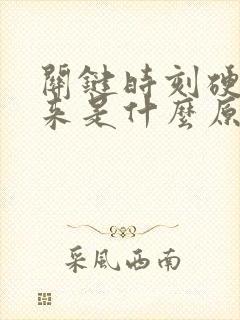 關鍵時刻硬
来是什麼原
采風西南